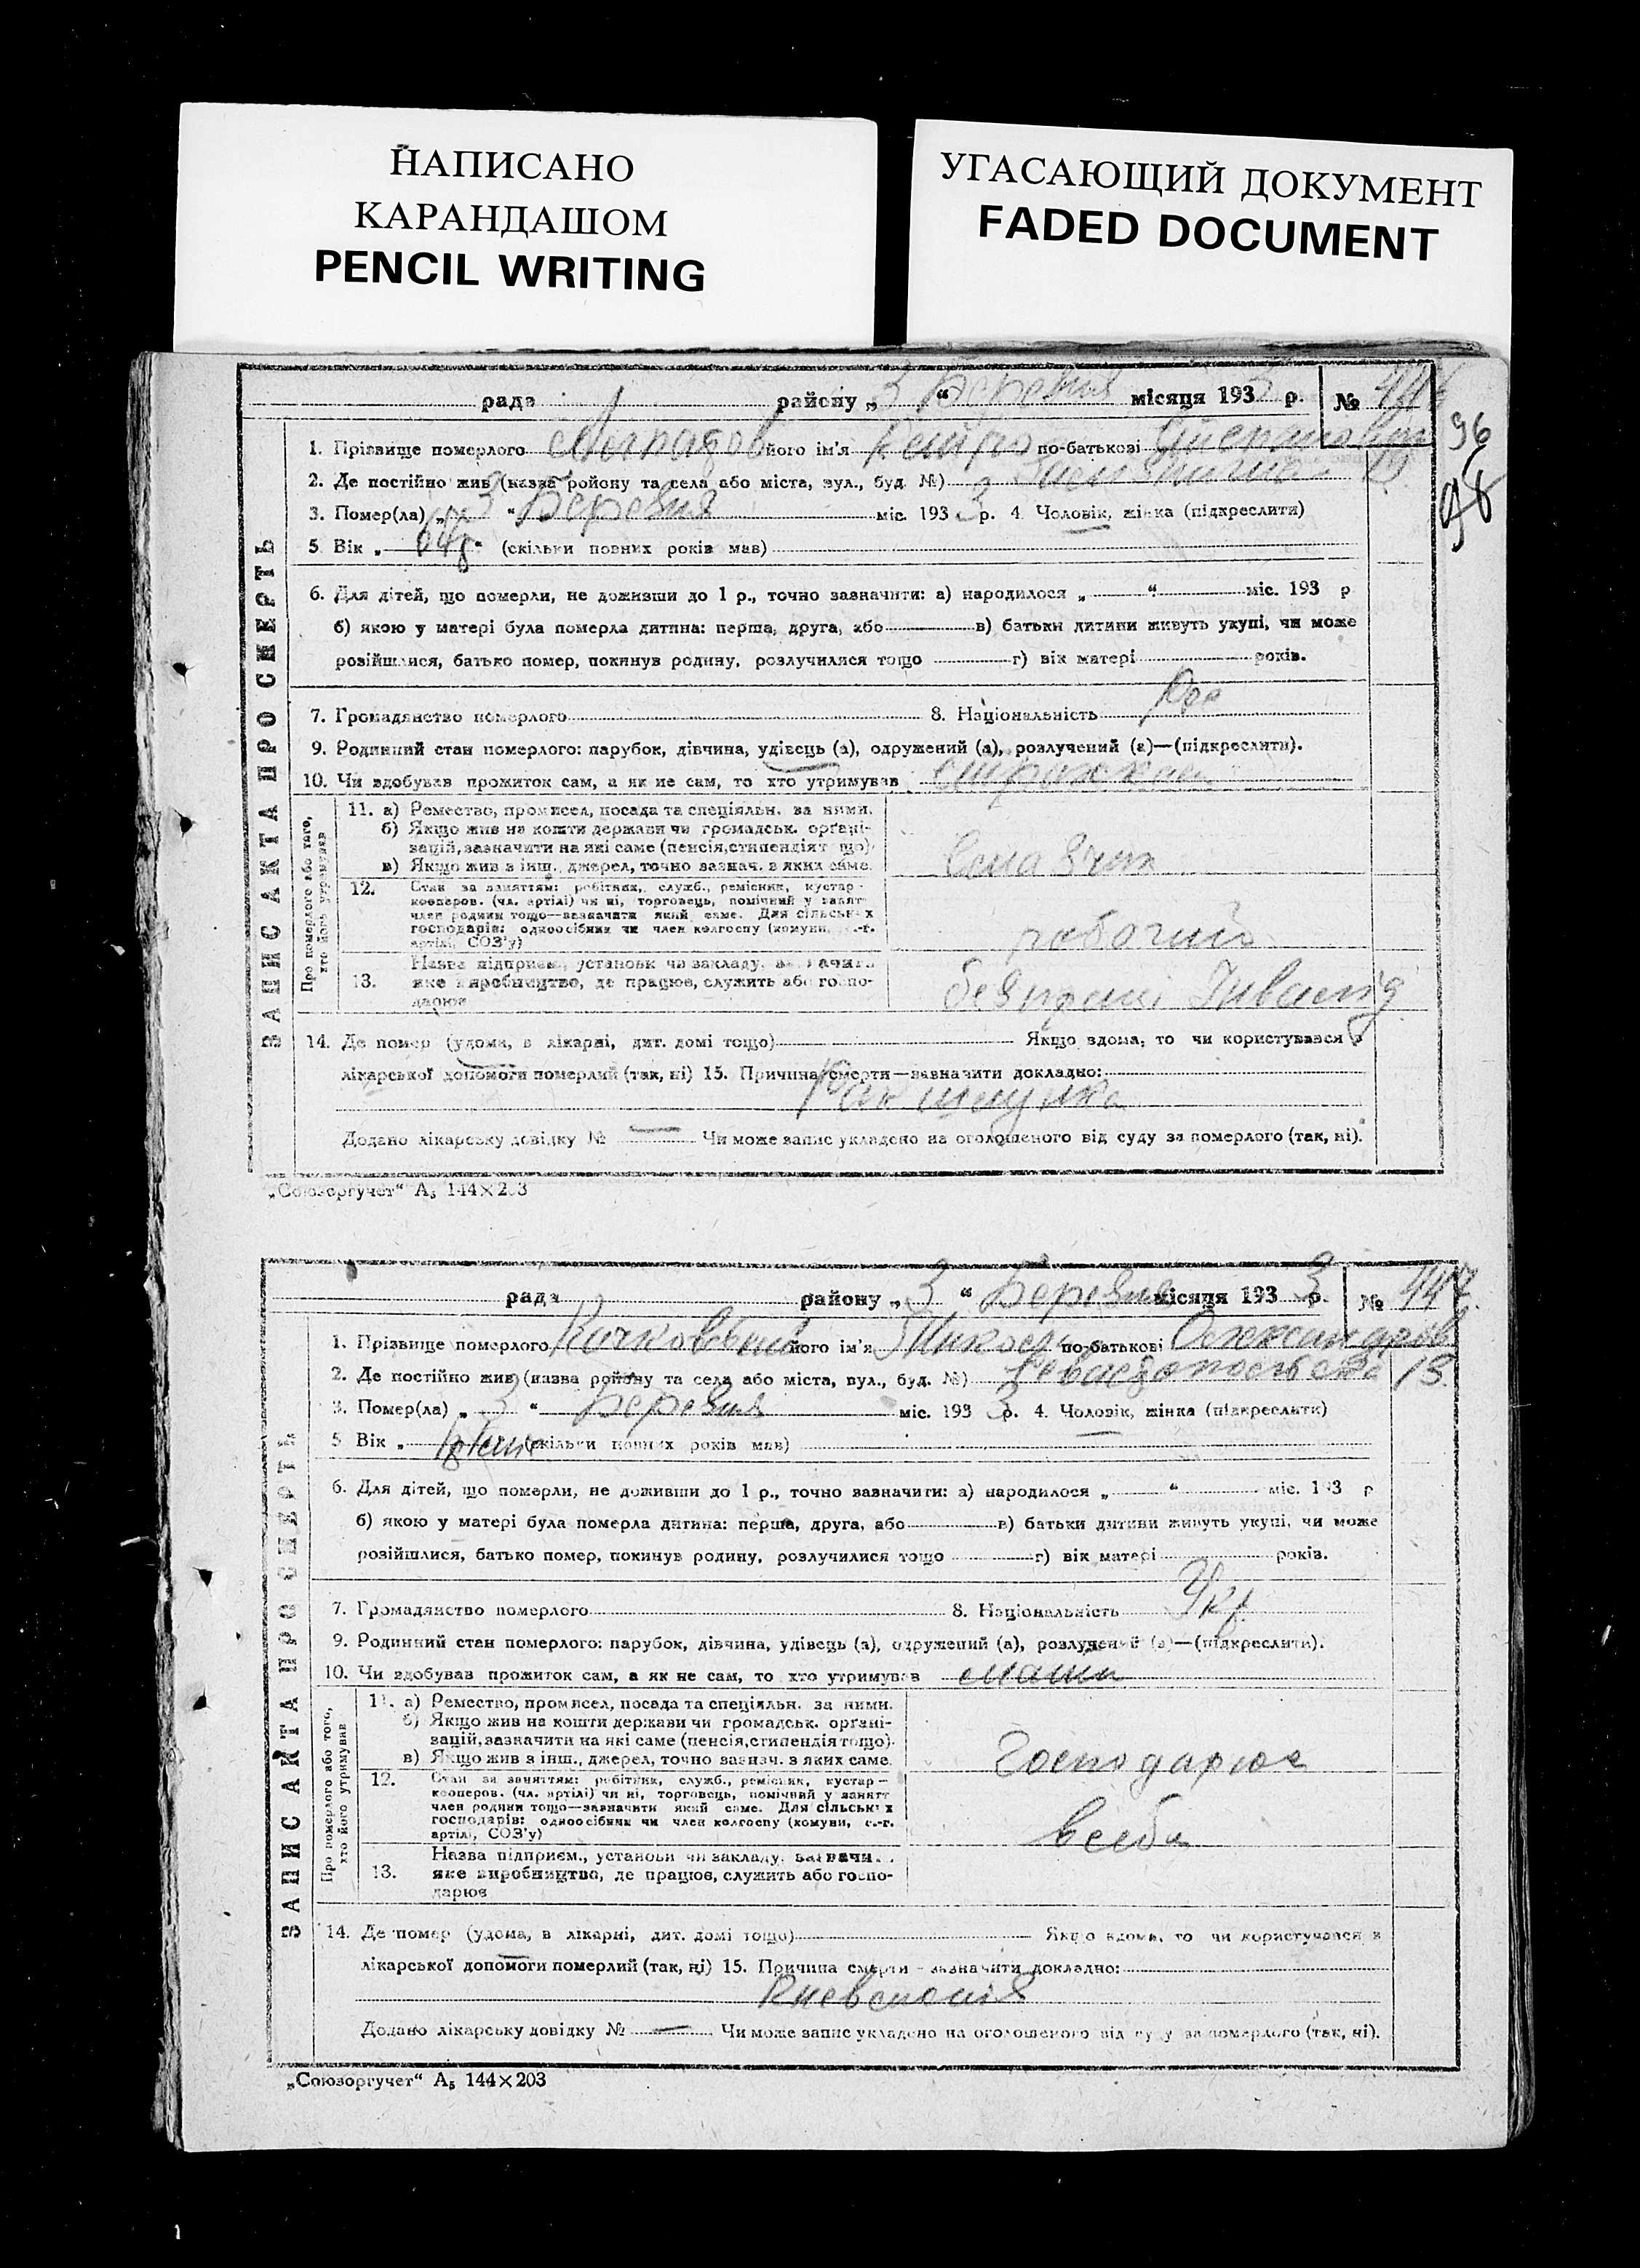 НАПИСАНО
КАРАНДАШОМ
PENCIL WRITING
УГАСАЮЩИЙ ДОКУМЕНТ
FADED DOCUMENT
рада району „3“ Березня місяця 1933 р. №
96
98
1. Прізвище померлого його ім'я по-батькові
2. Де постійно жив (назва району та села або міста, вул., буд. №)
3. Помер(ла) „3“ Березня міс. 1933 р. 4. Чоловік, жінка (підкреслити)
5. Вік „64р“ (скільки повних років мав)
6. Для дітей, що померли, не доживши до 1 р., точно зазначити: а) народилося „ “ міс. 193 р
б) якою у матері була померла дитина: перша, друга, або в) батьки дитини живуть укупі, чи може
розійшлися, батько помер, покинув родину, розлучилися тощо г) вік матері років.
7. Громадянство померлого 8. Національність
9. Родинний стан померлого: парубок, дівчина, удівець (а), одружений (а), розлучений (а)—(підкреслити).
10. Чи здобував прожиток сам, а як не сам, то хто утримував
ЗАПИС АКТА ПРО СМЕРТЬ
Про померлого або того, хто його утримував
11. а) Ремество, промисел, посада та спеціяльн. за ними.
б) Якщо жив на кошти держави чи громадськ. органі-
зацій, зазначити на які саме (пенсія, стипендія тощо).
в) Якщо жив з інш. джерел, точно зазнач. з яких саме.
12. Стан за заняттям: робітник, служб., ремісник, кустар-
кооперов. (чл. артілі) чи ні, торговець, помічний у занят
член родини тощо—зазначити який саме. Для сільських
господарів: одноосібник чи член колгоспу (комуни, с.-г.
артілі, СОЗ'у)
робочий
13. Назва підприєм., установи чи закладу, зазначи..
яке виробництво, де працює, служить або госпо-
дарює
14. Де помер (удома, в лікарні, дит. домі тощо) Якщо вдома, то чи користувався з
лікарської допомоги померлий (так, ні) 15. Причина смерти—зазначити докладно:
Рак шлунка
Додано лікарську довідку № — Чи може запис укладено на оголошеного від суду за померлого (так, ні).
„Союзоргучет“ А5 144×203
рада району „3“ Березня місяця 1933 р. № 447
1. Прізвище померлого його ім'я по-батькові Олександров
2. Де постійно жив (назва району та села або міста, вул., буд. №) 13
3. Помер(ла) „3“ Березня міс. 1933 р. 4. Чоловік, жінка (підкреслити)
5. Вік „ (скільки повних років мав)
6. Для дітей, що померли, не доживши до 1 р., точно зазначити: а) народилося „ “ міс. 193 р
б) якою у матері була померла дитина: перша, друга, або в) батьки дитини живуть укупі, чи може
розійшлися, батько помер, покинув родину, розлучилися тощо г) вік матері років.
7. Громадянство померлого 8. Національність Укр.
9. Родинний стан померлого: парубок, дівчина, удівець (а), одружений (а), розлучений (а)—(підкреслити).
10. Чи здобував прожиток сам, а як не сам, то хто утримував мати
ЗАПИС АКТА ПРО СМЕРТЬ
Про померлого або того, хто його утримував
11. а) Ремество, промисел, посада та спеціяльн. за ними.
б) Якщо жив на кошти держави чи громадськ. органі-
зацій, зазначити на які саме (пенсія, стипендія тощо).
в) Якщо жив з інш., джерел, точно зазнач. з яких саме.
Господарює
12. Стан за заняттям: робітник, служб., ремісник, кустар—
кооперов. (чл. артілі) чи ні, торговець, помічний у занятт
член родини тощо—зазначити який саме. Для сільських
господарів: одноосібник чи член колгоспу (комуни, с.-г.
артілі, СОЗ'у)
всеби
13. Назва підприєм., установи чи закладу, зазначи..
яке виробництво, де працює, служить або госпо-
дарює
14. Де помер (удома, в лікарні, дит. домі тощо) Якщо вдома, то чи користувався з
лікарської допомоги померлий (так, ні) 15. Причина смерти—зазначити докладно:
Пневмонія
Додано лікарську довідку № — Чи може запис укладено на оголошеного від суду за померлого (так, ні).
„Союзоргучет“ А5 144×203